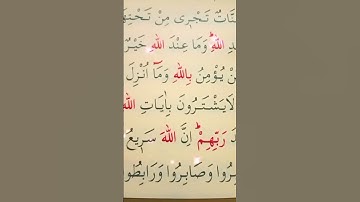 جَنَّاتٌ تَجْرِى مِنْ تَحْتِهَا
اللّٰهِ وَمَا عِنْدَ اللّٰهِ خَيْرٌ
يُؤْمِنُ بِاللّٰهِ وَمَٓا اُنْزِلَ
لَا يَشْتَرُونَ بِاٰيَاتِ اللّٰهِ
رَبِّهِمْ اِنَّ اللّٰهَ سَرٖيعُ
وَصَابِرُوا وَرَابِطُوا